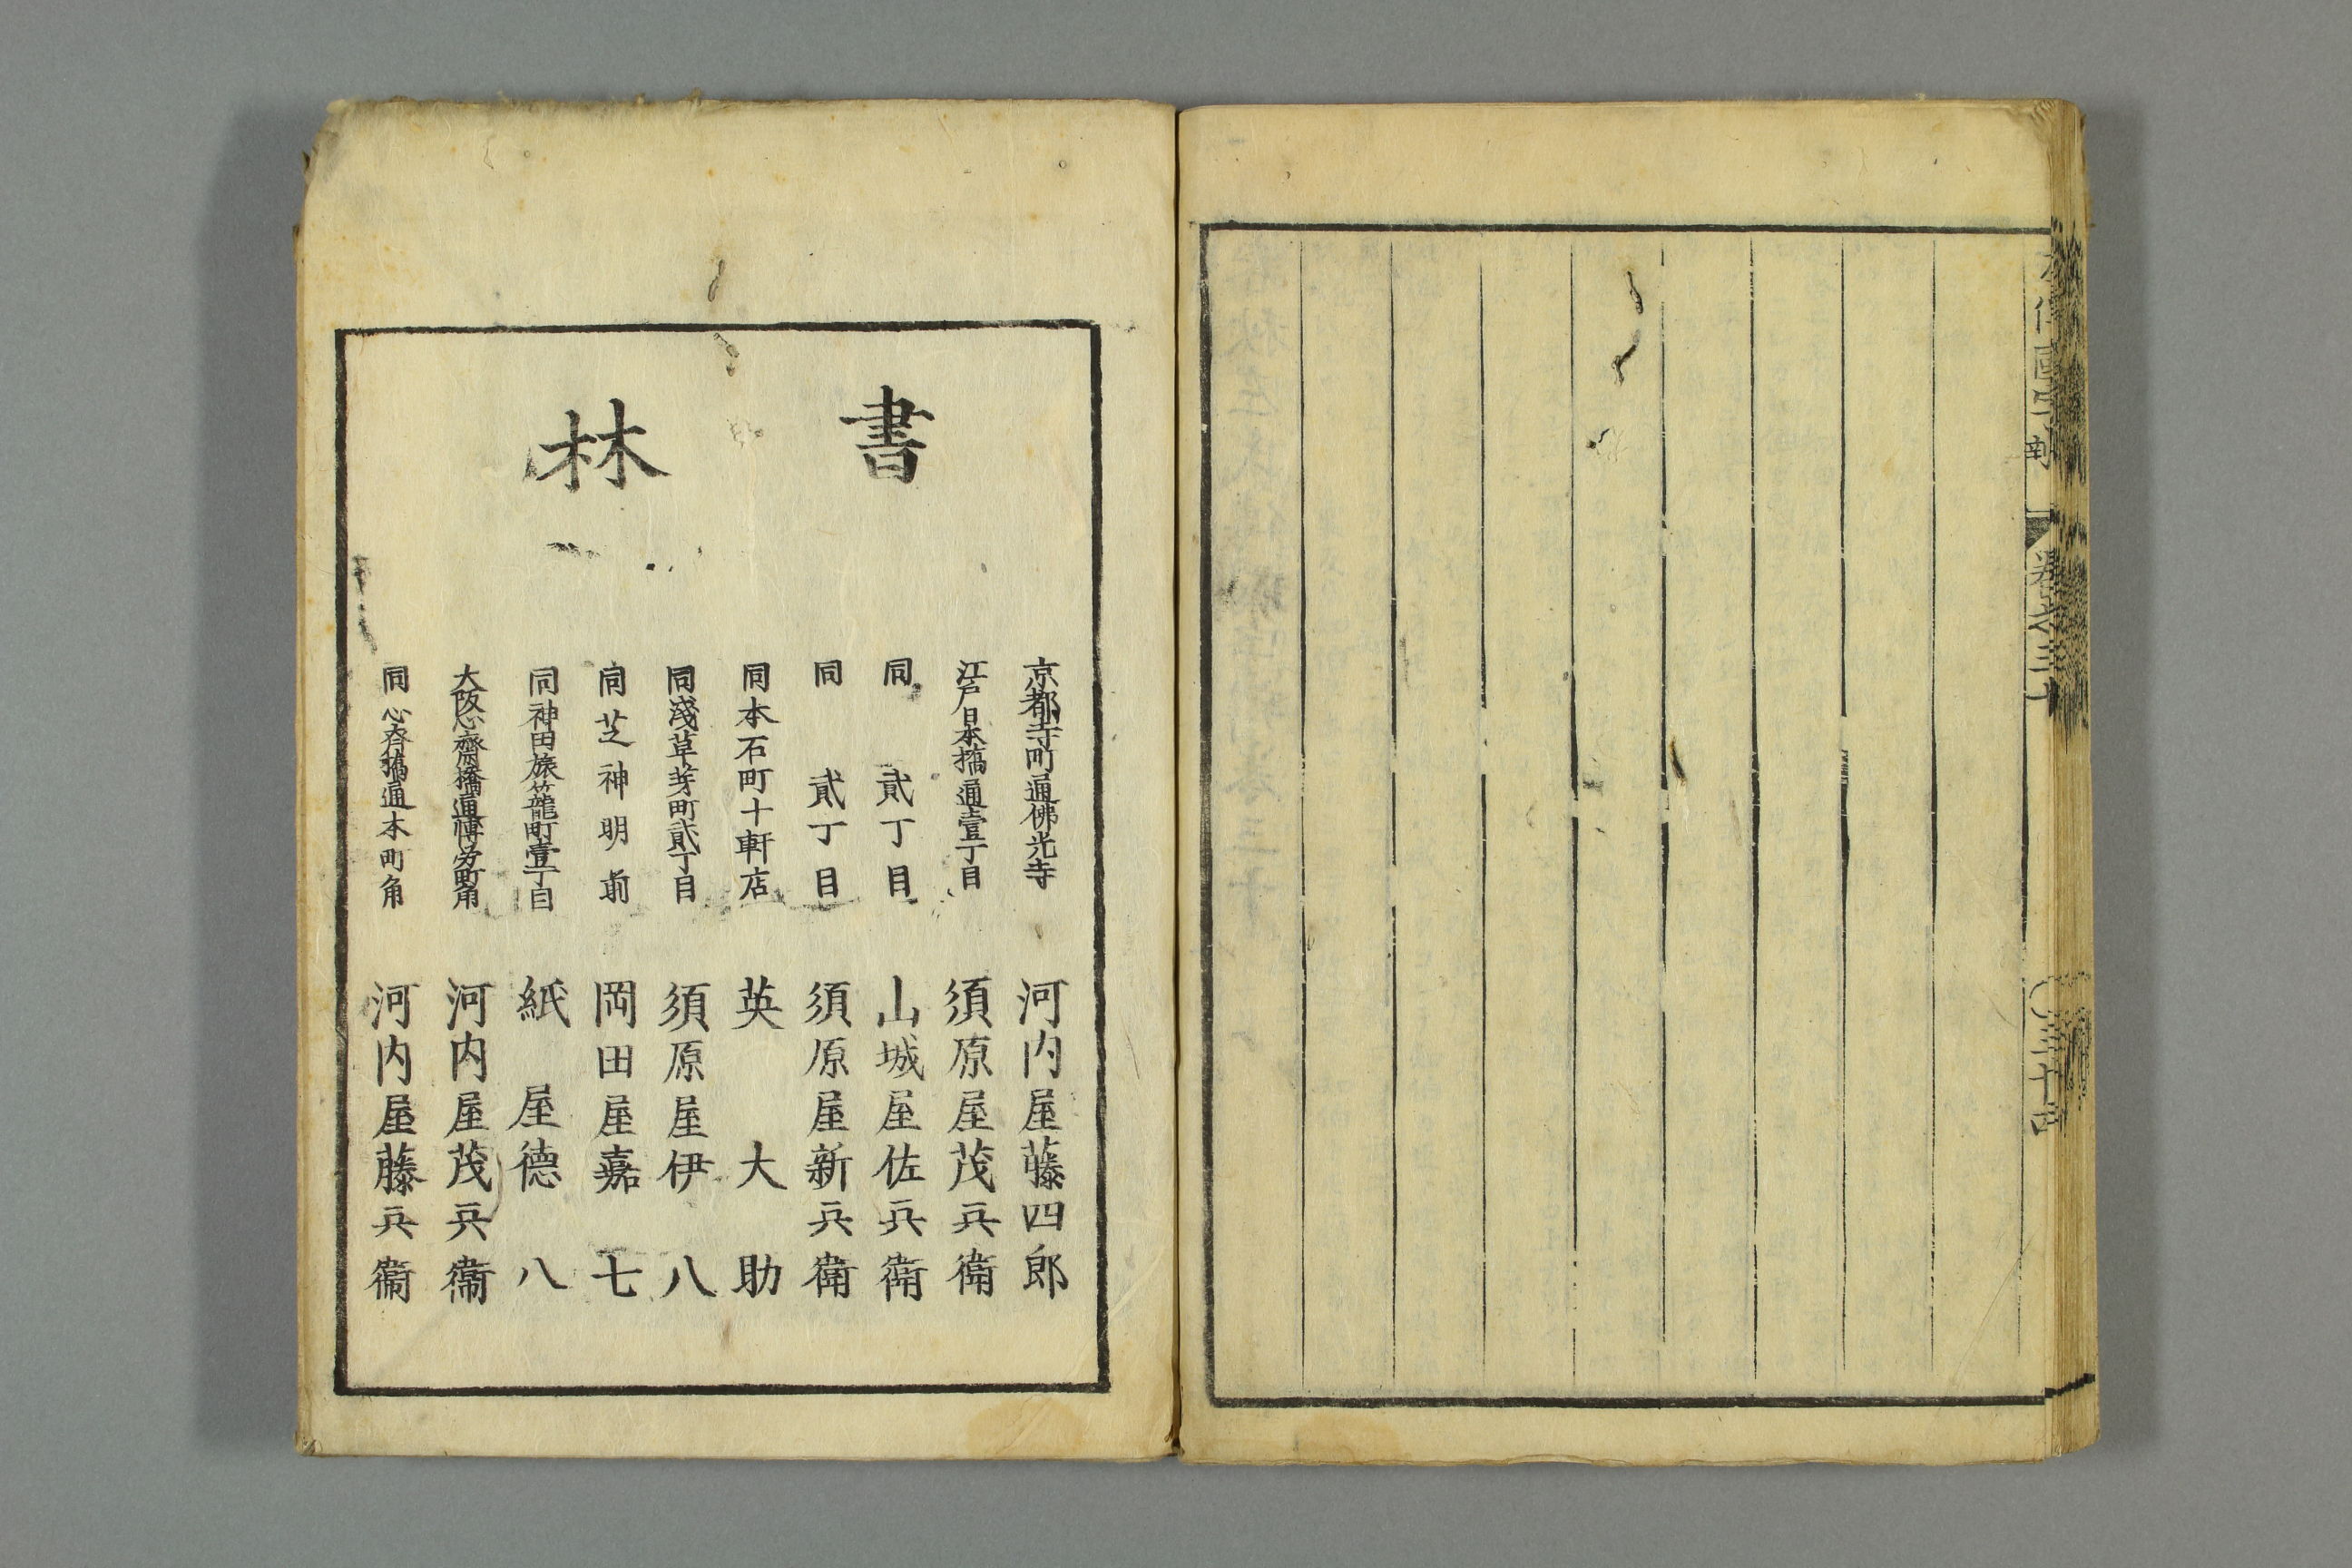 卷之三十
三十四
書林
京都寺町通佛光寺 河内屋藤四郎
江戸日本橋通壹丁目 須原屋茂兵衛
同 貳丁目 山城屋佐兵衛
同 貳丁目 須原屋新兵衛
同本石町十軒店 英大助
同淺草芽町貳丁目 須原屋伊八
同芝神明前 岡田屋嘉七
同神田旅籠町壹丁目 紙屋德八
大阪心齋橋通博労町角 河内屋茂兵衛
同心斉橋通本町角 河内屋藤兵衛